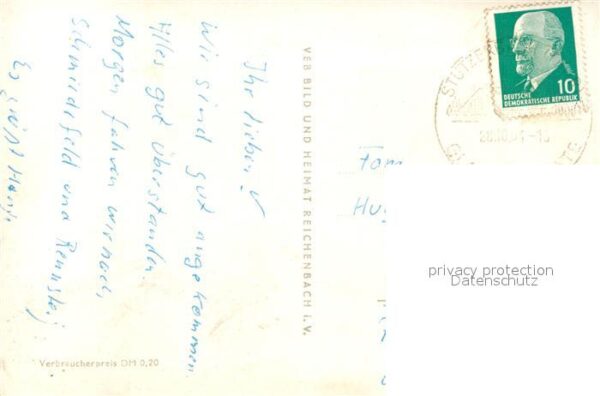 Ihr lieben
Wir sind gut angekommen
Alles gut überstanden.
Morgen fahren wir nach
Schmiedefeld und Rennsteig
Es grüßt
VEB BILD UND HEIMAT REICHENBACH i. V.
Verbraucherpreis DM 0,20
10
DEUTSCHE
DEMOKRATISCHE REPUBLIK
Fam
privacy protection
Datenschutz